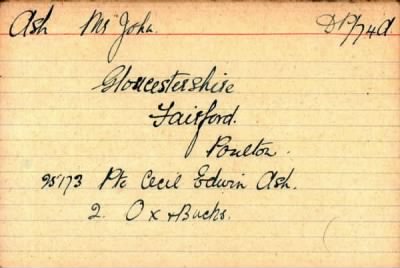 Ash Mr John. DP/74A.
Gloucestershire
Fairford.
Poulton.
95173 Pte Cecil Edwin Ash.
2. Ox & Bucks.